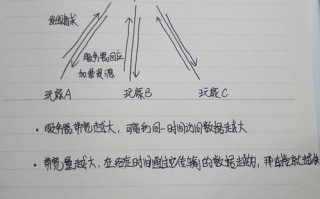 发出请求
服务器回应
加载资源
玩家A 玩家B 玩家C
• 服务器带宽越大,可能的同一时间访问数据越大
• 带宽量越大,在规定时间通过它传输的数据越多,那